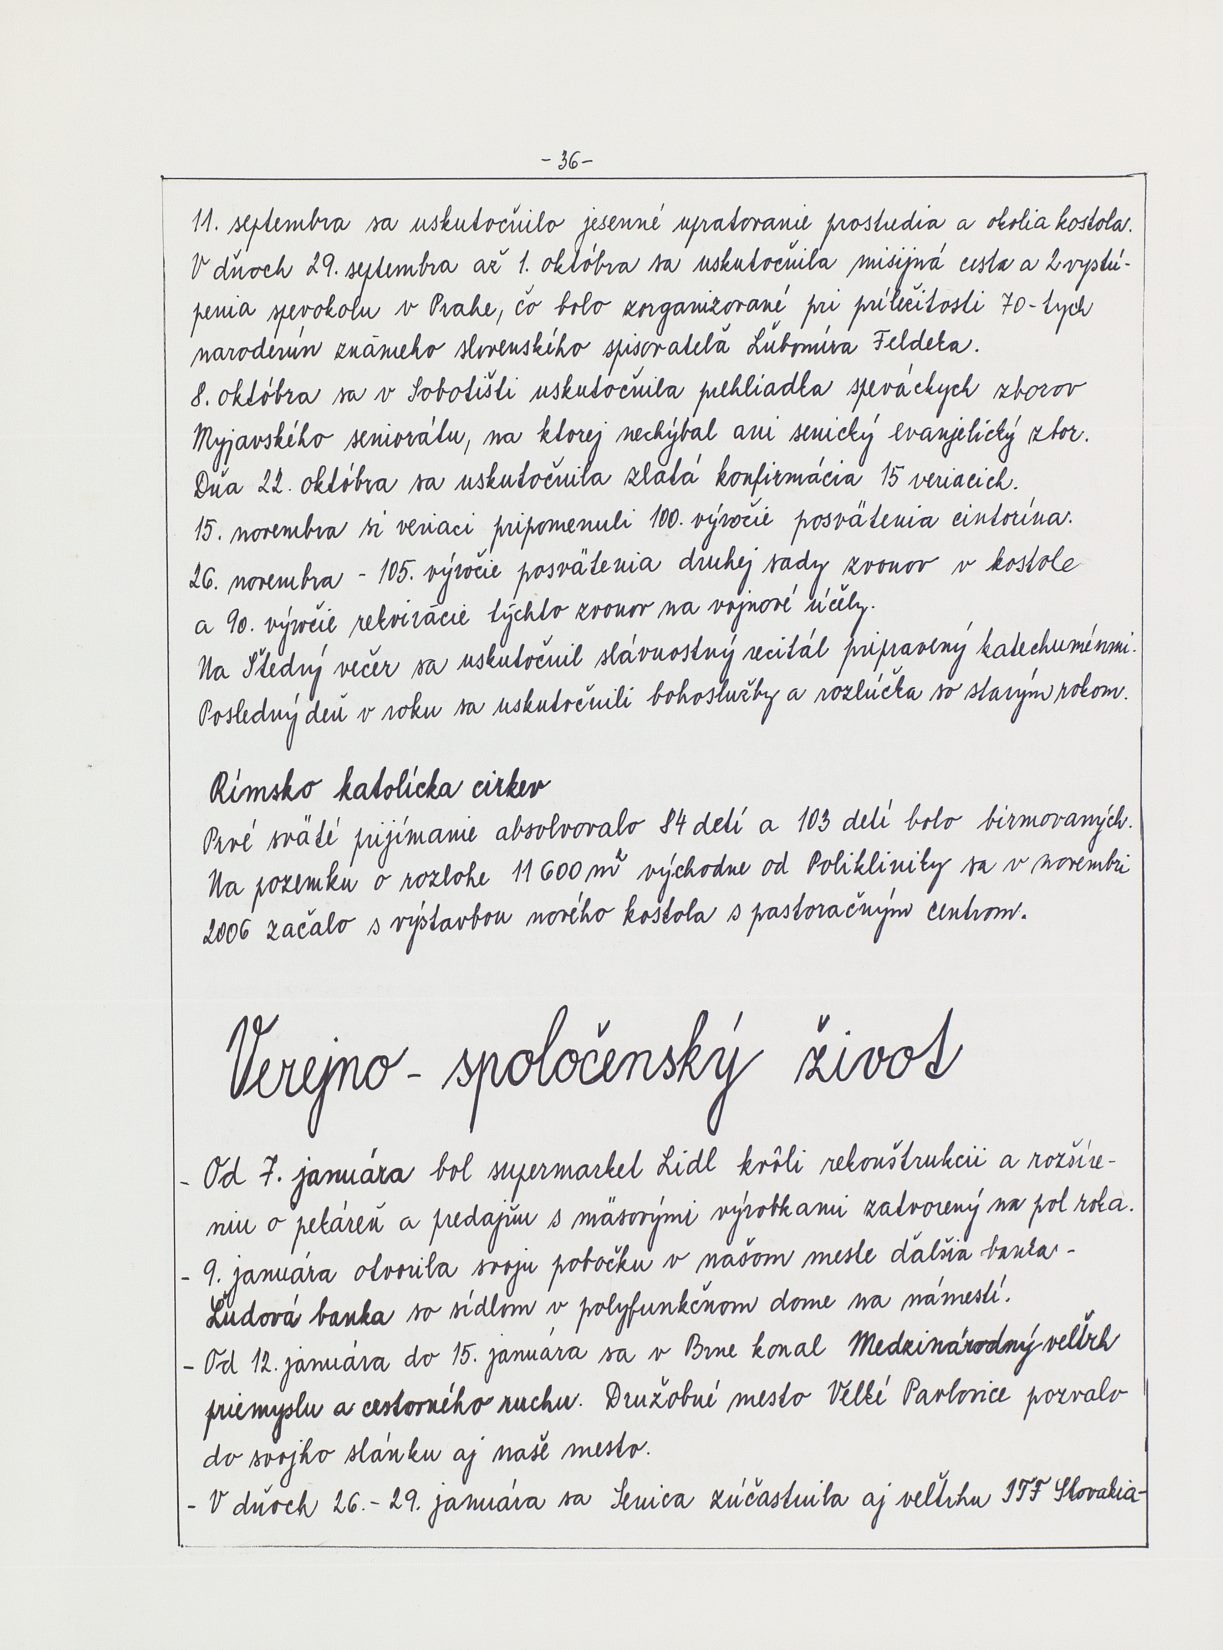 - 36 -
11. septembra sa uskutočnilo jesenné upratovanie prostredia a okolia kostola.
V dňoch 29. septembra až 1. októbra sa uskutočnila misijná cesta a 2 vystú-
penia spevokolu v Prahe, čo bolo zorganizované pri príležitosti 70-tych
narodenín známeho slovenského spisovateľa Ľubomíra Feldeka.
8. októbra sa v Sobotišti uskutočnila prehliadka speváckych zborov
Myjavského seniorátu, na ktorej nechýbal ani senický evanjelický zbor.
Dňa 22. októbra sa uskutočnila zlatá konfirmácia 15 veriacich.
15. novembra si veriaci pripomenuli 100. výročie posvätenia cintorína.
26. novembra - 105. výročie posvätenia druhej sady zvonov v kostole
a 90. výročie rekvirácie týchto zvonov na vojnové účely.
Na Štedrý večer sa uskutočnil slávnostný recitál pripravený katechuménmi.
Posledný deň v roku sa uskutočnili bohoslužby a rozlúčka so starým rokom.
Rímsko katolícka cirkev
Prvé sväté prijímanie absolvovalo 84 detí a 103 detí bolo birmovaných.
Na pozemku o rozlohe 11 600 m² východne od Polikliniky sa v novembri
2006 začalo s výstavbou nového kostola s pastoračným centrom.
Verejno - spoločenský život
- Od 7. januára bol supermarket Lidl kvôli rekonštrukcii a rozšíre-
niu o pekáreň a predajňu s mäsovými výrobkami zatvorený na pol roka.
- 9. januára otvorila svoju pobočku v našom meste ďalšia banka -
Ľudová banka so sídlom v polyfunkčnom dome na námestí.
- Od 12. januára do 15. januára sa v Brne konal Medzinárodný veľtrh
priemyslu a cestovného ruchu. Družobné mesto Velké Pavlovice pozvalo
do svojho stánku aj naše mesto.
- V dňoch 26. - 29. januára sa Senica zúčastnila aj veľtrhu ITF Slovakia-